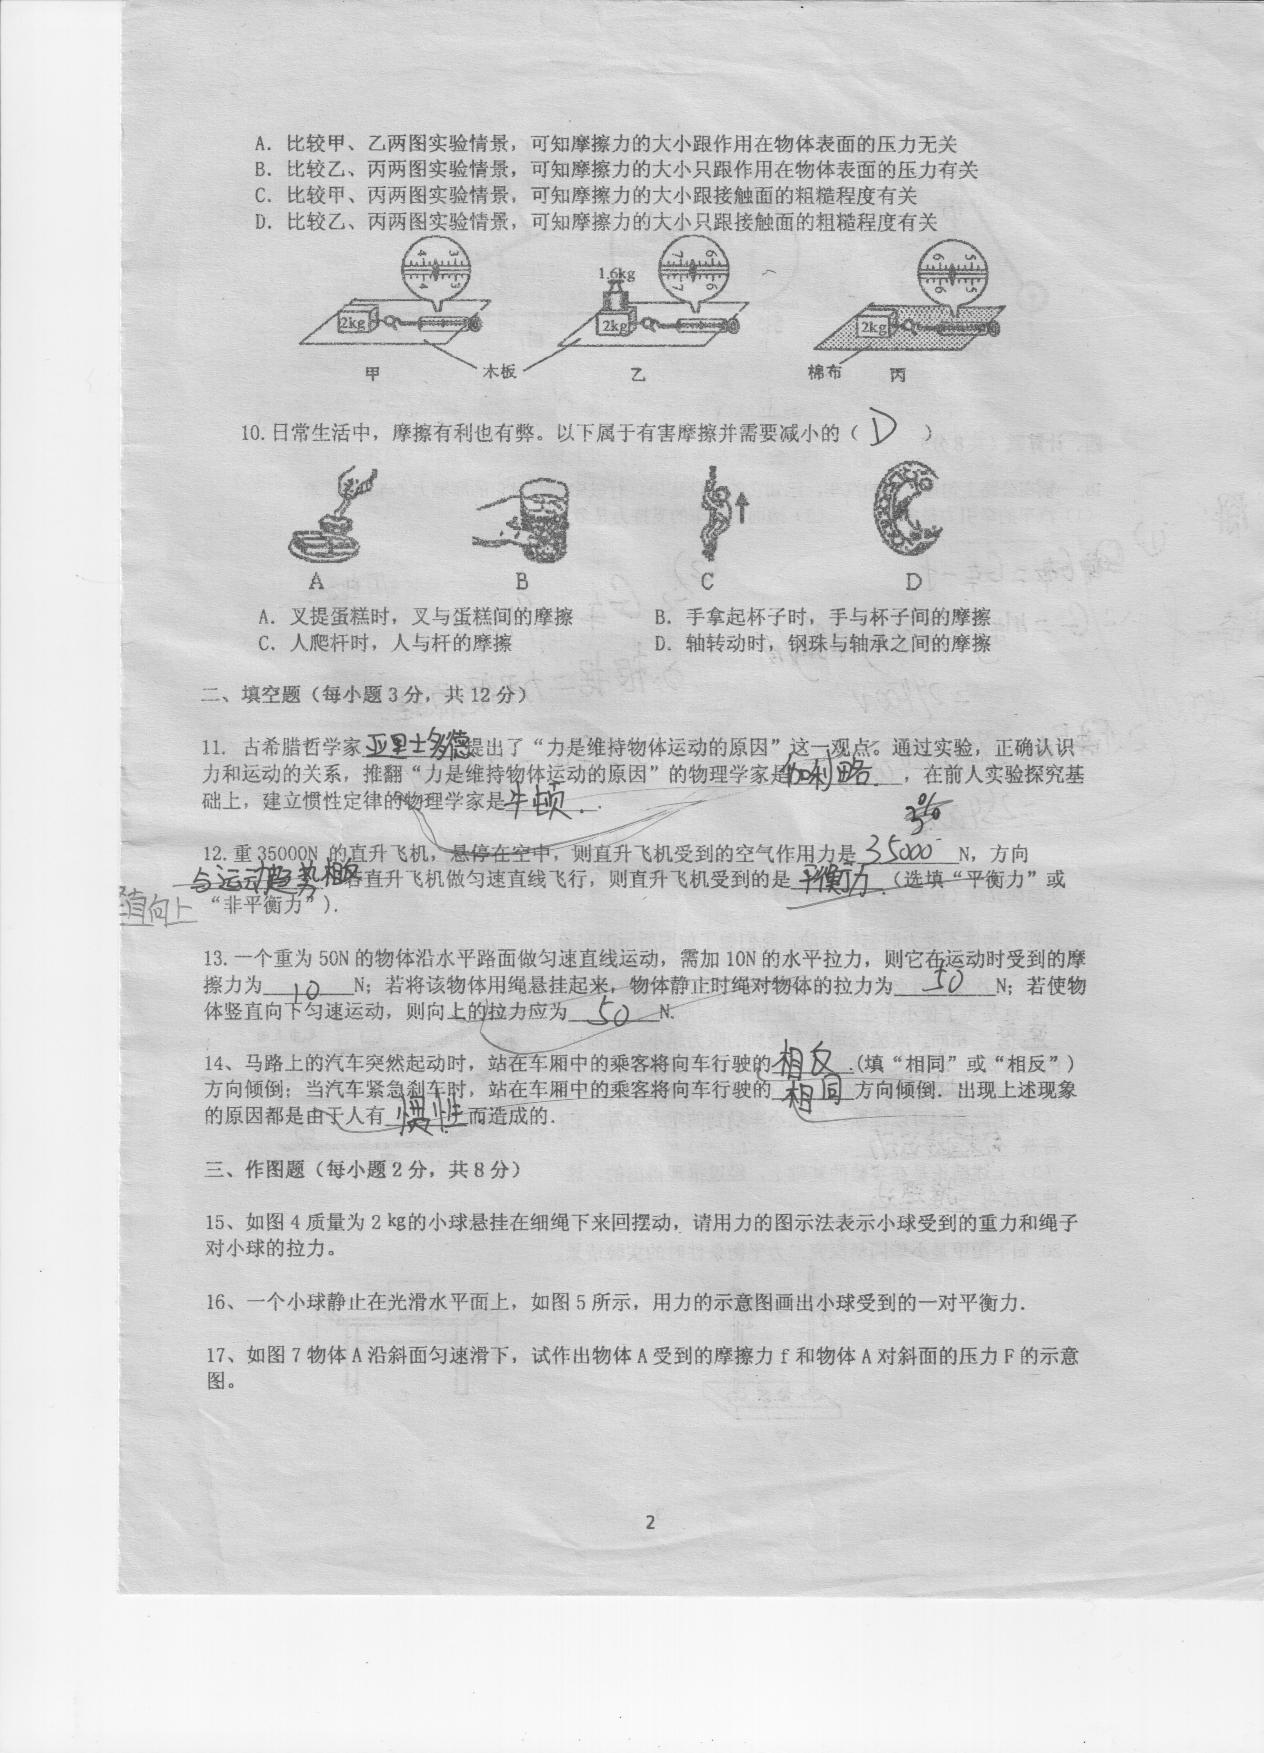 A. 比较甲、乙两图实验情景，可知摩擦力的大小跟作用在物体表面的压力无关
B. 比较乙、丙两图实验情景，可知摩擦力的大小只跟作用在物体表面的压力有关
C. 比较甲、丙两图实验情景，可知摩擦力的大小跟接触面的粗糙程度有关
D. 比较乙、丙两图实验情景，可知摩擦力的大小只跟接触面的粗糙程度有关
4 3 4 3
2kg
1.6kg
7 6 7 6
2kg
6 5 6 5
2kg
甲 木板 乙 棉布 丙
10.日常生活中，摩擦有利也有弊。以下属于有害摩擦并需要减小的（ D ）
A B C D
A. 叉提蛋糕时，叉与蛋糕间的摩擦 B. 手拿起杯子时，手与杯子间的摩擦
C. 人爬杆时，人与杆的摩擦 D. 轴转动时，钢珠与轴承之间的摩擦
二、填空题（每小题3分，共12分）
11. 古希腊哲学家亚里士多德提出了“力是维持物体运动的原因”这一观点。通过实验，正确认识
力和运动的关系，推翻“力是维持物体运动的原因”的物理学家是伽利略，在前人实验探究基
础上，建立惯性定律的物理学家是牛顿.
12.重35000N 的直升飞机，悬停在空中，则直升飞机受到的空气作用力是35000N，方向
与运动趋势相反若直升飞机做匀速直线飞行，则直升飞机受到的是平衡力.（选填“平衡力”或
竖直向上
“非平衡力”）.
13.一个重为50N的物体沿水平路面做匀速直线运动，需加10N的水平拉力，则它在运动时受到的摩
擦力为10N；若将该物体用绳悬挂起来，物体静止时绳对物体的拉力为50N；若使物
体竖直向下匀速运动，则向上的拉力应为50N.
14、马路上的汽车突然起动时，站在车厢中的乘客将向车行驶的相反.(填“相同”或“相反”)
方向倾倒；当汽车紧急刹车时，站在车厢中的乘客将向车行驶的相同方向倾倒. 出现上述现象
的原因都是由于人有惯性而造成的.
三、作图题（每小题2分，共8分）
15、如图4质量为2kg的小球悬挂在细绳下来回摆动，请用力的图示法表示小球受到的重力和绳子
对小球的拉力。
16、一个小球静止在光滑水平面上，如图5所示，用力的示意图画出小球受到的一对平衡力.
17、如图7物体A沿斜面匀速滑下，试作出物体A受到的摩擦力f和物体A对斜面的压力F的示意
图。
2